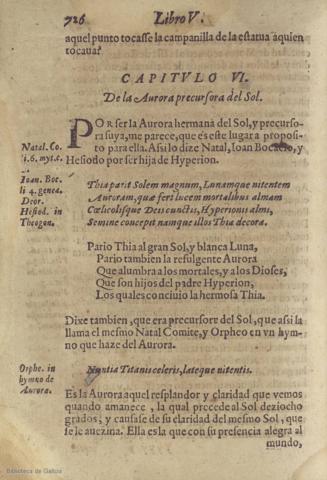 726 Libro V.
aquel punto tocasse la campanilla de la estatua aquien
tocaua?
CAPITVLO VI.
De la Aurora precursora del Sol.
POR ser la Aurora hermana del Sol, y precurso-
ra suya, me parece, que es este lugar a proposi-
to para ella. Assi lo dize Natal, Ioan Bocacio, y
Hesiodo por ser hija de Hyperion.
Natal. Co.
i. 6. myt. c.
Ioan. Boc.
li 4. genea.
Deor.
Hesiod. in
Theogon.
Thia parit Solem magnum, Lunamque nitentem
Auroram, quæ fert lucem mortalibus almam
Cœlicolisque Deis cunctis, Hyperionis almi,
Semine concepit namque illos Thia decora.
Pario Thia al gran Sol, y blanca Luna,
Pario tambien la refulgente Aurora
Que alumbra a los mortales, y a los Dioses,
Que son hijos del padre Hyperion,
Los quales conciuio la hermosa Thia.
Dize tambien, que era precursore del Sol, que assi la
llama el mesmo Natal Comite, y Orpheo en vn hym-
no que haze del Aurora.
Orphe. in
hymno de
Aurora.
Nuntia Titanis celeris, lateque nitentis.
Es la Aurora aquel resplandor y claridad que vemos
quando amanece, la qual precede al Sol deziocho
grados, y causase de su claridad del mesmo Sol, que
se le auezina. Ella es la que con su presencia alegra al
mundo,
Biblioteca de Galicia